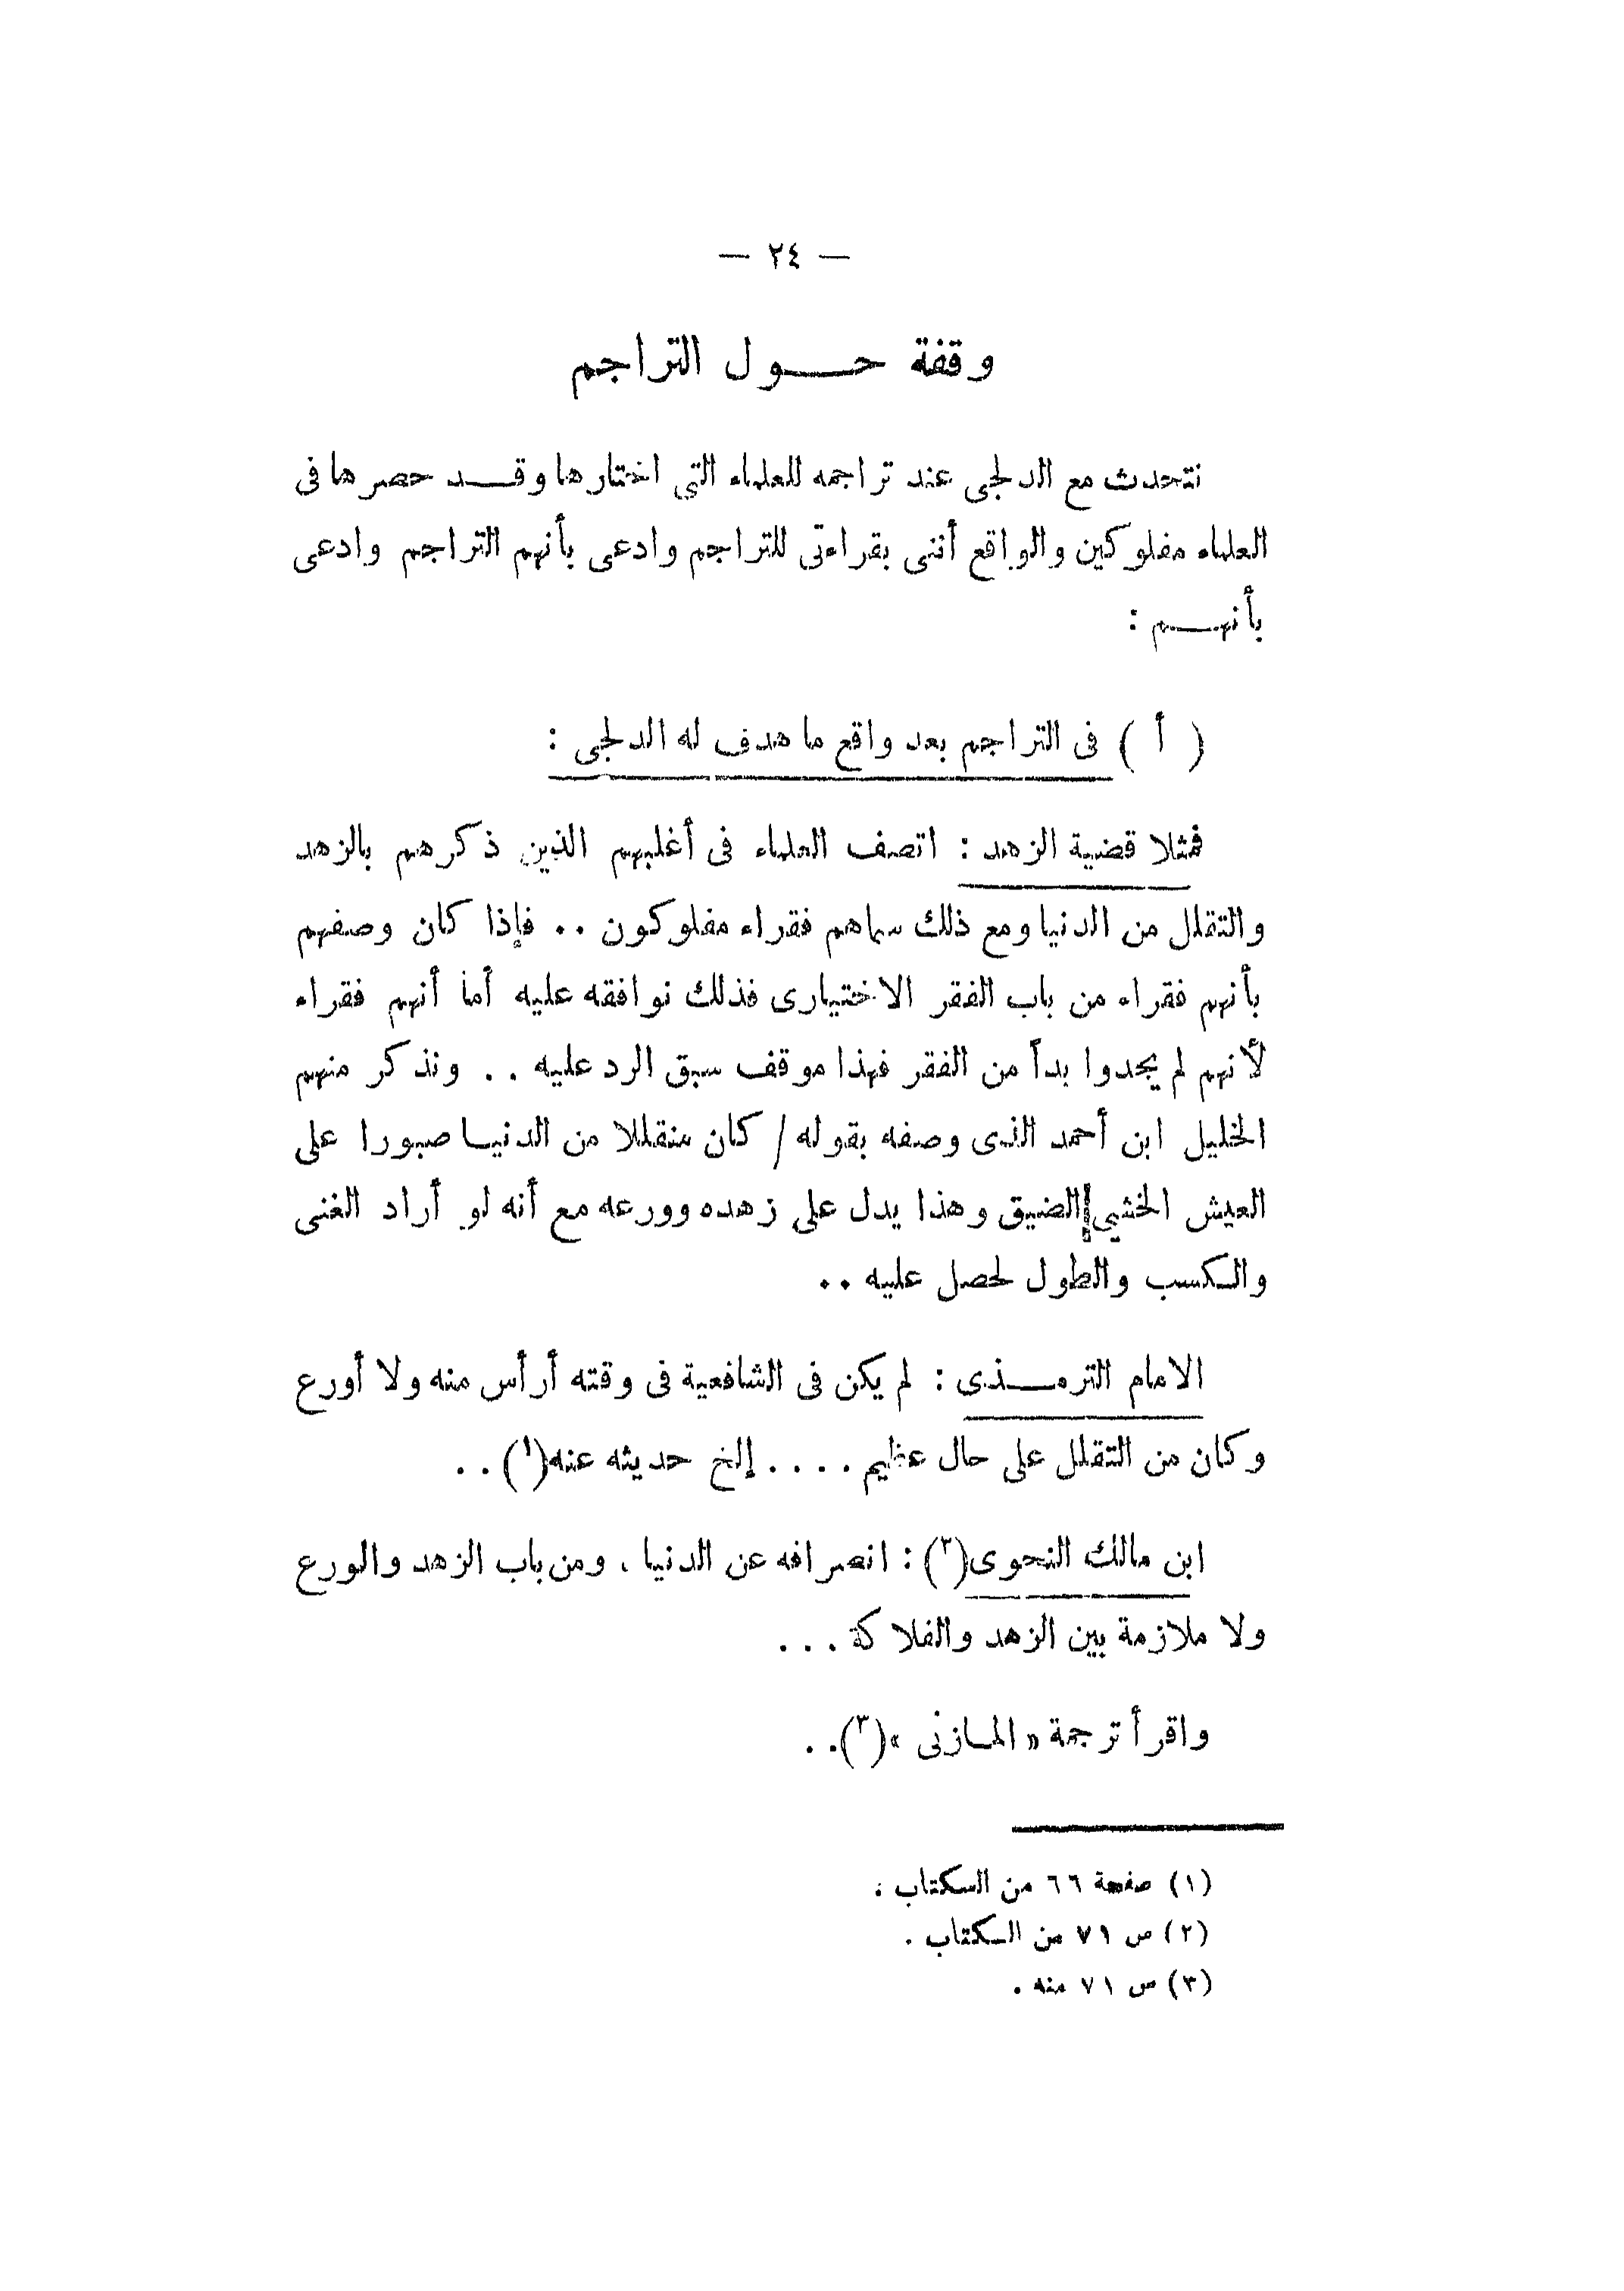 — ٢٤ —
وقفة حول التراجم
نتحدث مع الدلجى عند تراجمه للعلماء التى اختارها وقد حصرها فى
العلماء مفلوكين والواقع أننى بقراءتى للتراجم وادعى بأنهم التراجم وادعى
بأنهم :
( أ ) فى التراجم بعد واقع ما هدف له الدلجى :
فمثلا قضية الزهد : اتصف العلماء فى أغلبهم الذين ذكرهم بالزهد
والتقلل من الدنيا ومع ذلك سماهم فقراء مفلوكون .. فإذا كان وصفهم
بأنهم فقراء من باب الفقر الاختيارى فذلك نوافقه عليه أما أنهم فقراء
لأنهم لم يجدوا بداً من الفقر فهذا موقف سبق الرد عليه .. ونذكر منهم
الخليل ابن أحمد الذى وصفه بقوله / كان متقللا من الدنيا صبورا على
العيش الخشن الضيق وهذا يدل على زهده وورعه مع أنه لو أراد الغنى
والكسب والطول لحصل عليه ..
الامام الترمذى : لم يكن فى الشافعية فى وقته أرأس منه ولا أورع
وكان من التقلل على حال عظيم .... إلخ حديثه عنه(١) ..
ابن مالك النحوى(٢) : انصرافه عن الدنيا ، ومن باب الزهد والورع
ولا ملازمة بين الزهد والفلاكة ...
واقرأ ترجمة « المازنى »(٣) ..
(١) صفحة ٦٦ من الكتاب .
(٢) ص ٧١ من الكتاب .
(٣) ص ٧١ منه .